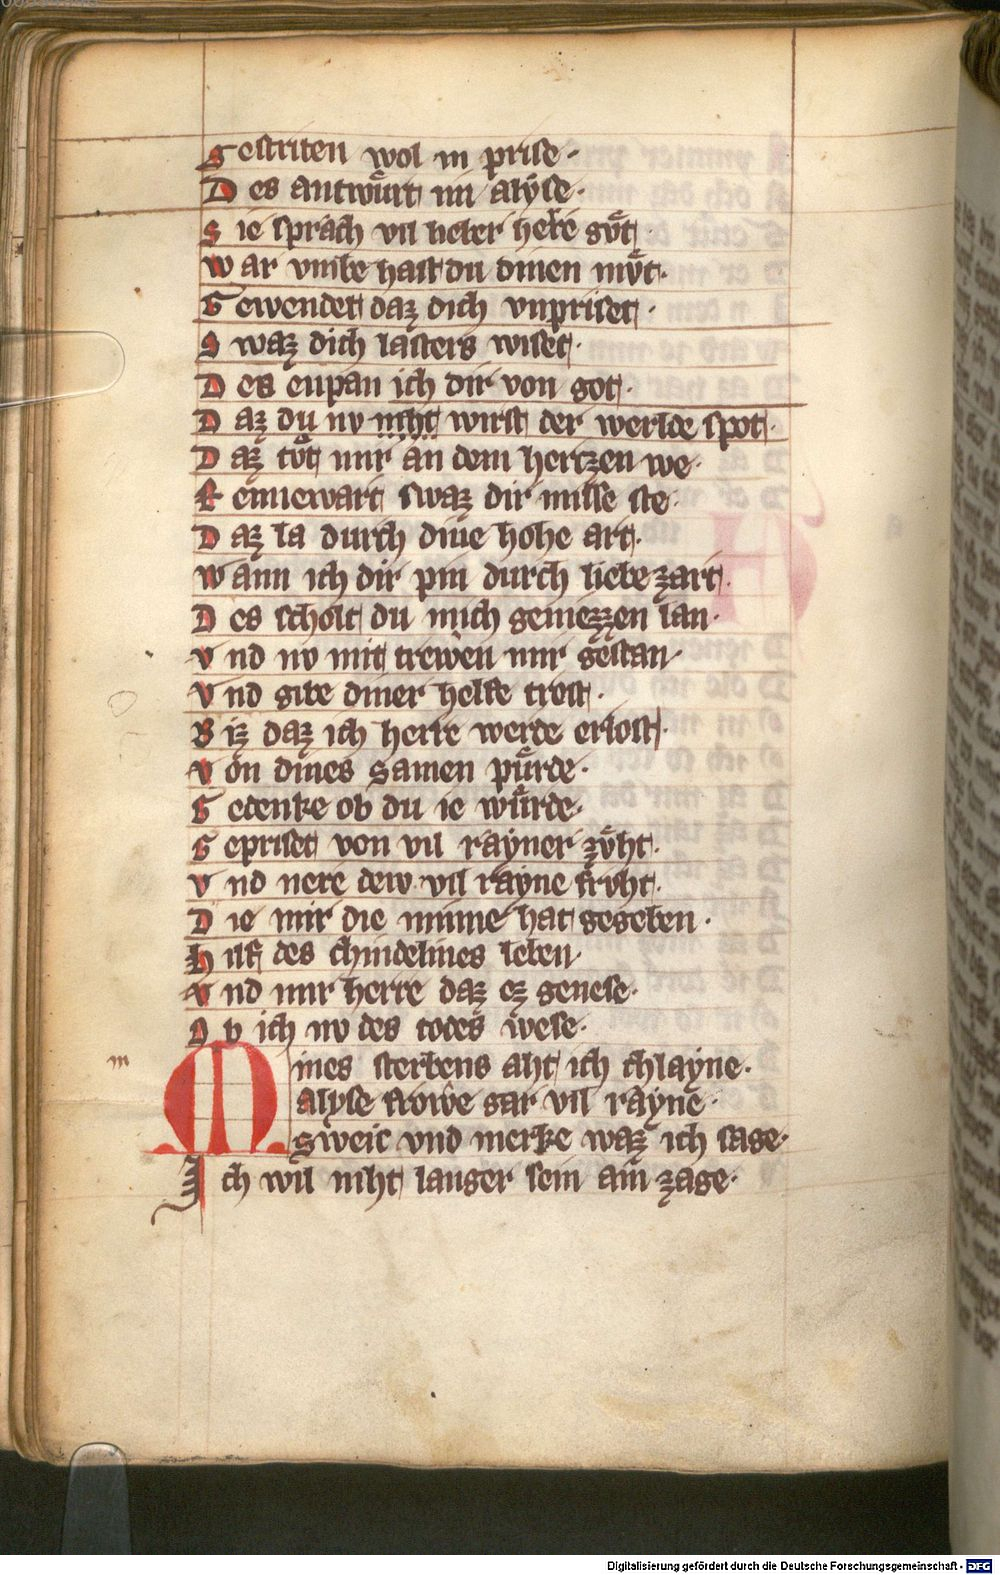 Gestriten wol in prise·
Des antwuͤrt im alyse·
Sie sprach vil lieber herre guͤt·
War vmbe hast du dinen muͤt·
Gewendet daz dich vnpriset·
Swaz dich lasters wiset·
Des enpan ich dir von got·
Daz du nv niht wirst der werlde spot·
Daz tuͦt mir an dem hertzen we·
Rennewart swaz dir misse ste·
Daz la durch dine hohe art·
Wann ich dir pin durch liebe zart·
Des scholt du mich geniezzen lan·
Vnd nv mit trewen mir gestan·
Vnd gibe diner helfe trost·
Biz daz ich herre werde erlost·
Von dines samen puͤrde·
Gedenke ob du ie wuͤrde·
Gepriset von vil rayner zvͤht·
Vnd nere dew vil rayne frvht·
Die mir die minne hat gegeben·
Hilf des chindelines leben·
Vnd mir herre daz ez genese·
Ob ich nv des todes wese·
m
Mines sterbens aht ich chlayne·
alyse frowe gar vil rayne·
sweic vnd merke waz ich sage·
Ich wil niht langer sein ain zage·
Digitalisierung gefördert durch die Deutsche Forschungsgemeinschaft - DFG